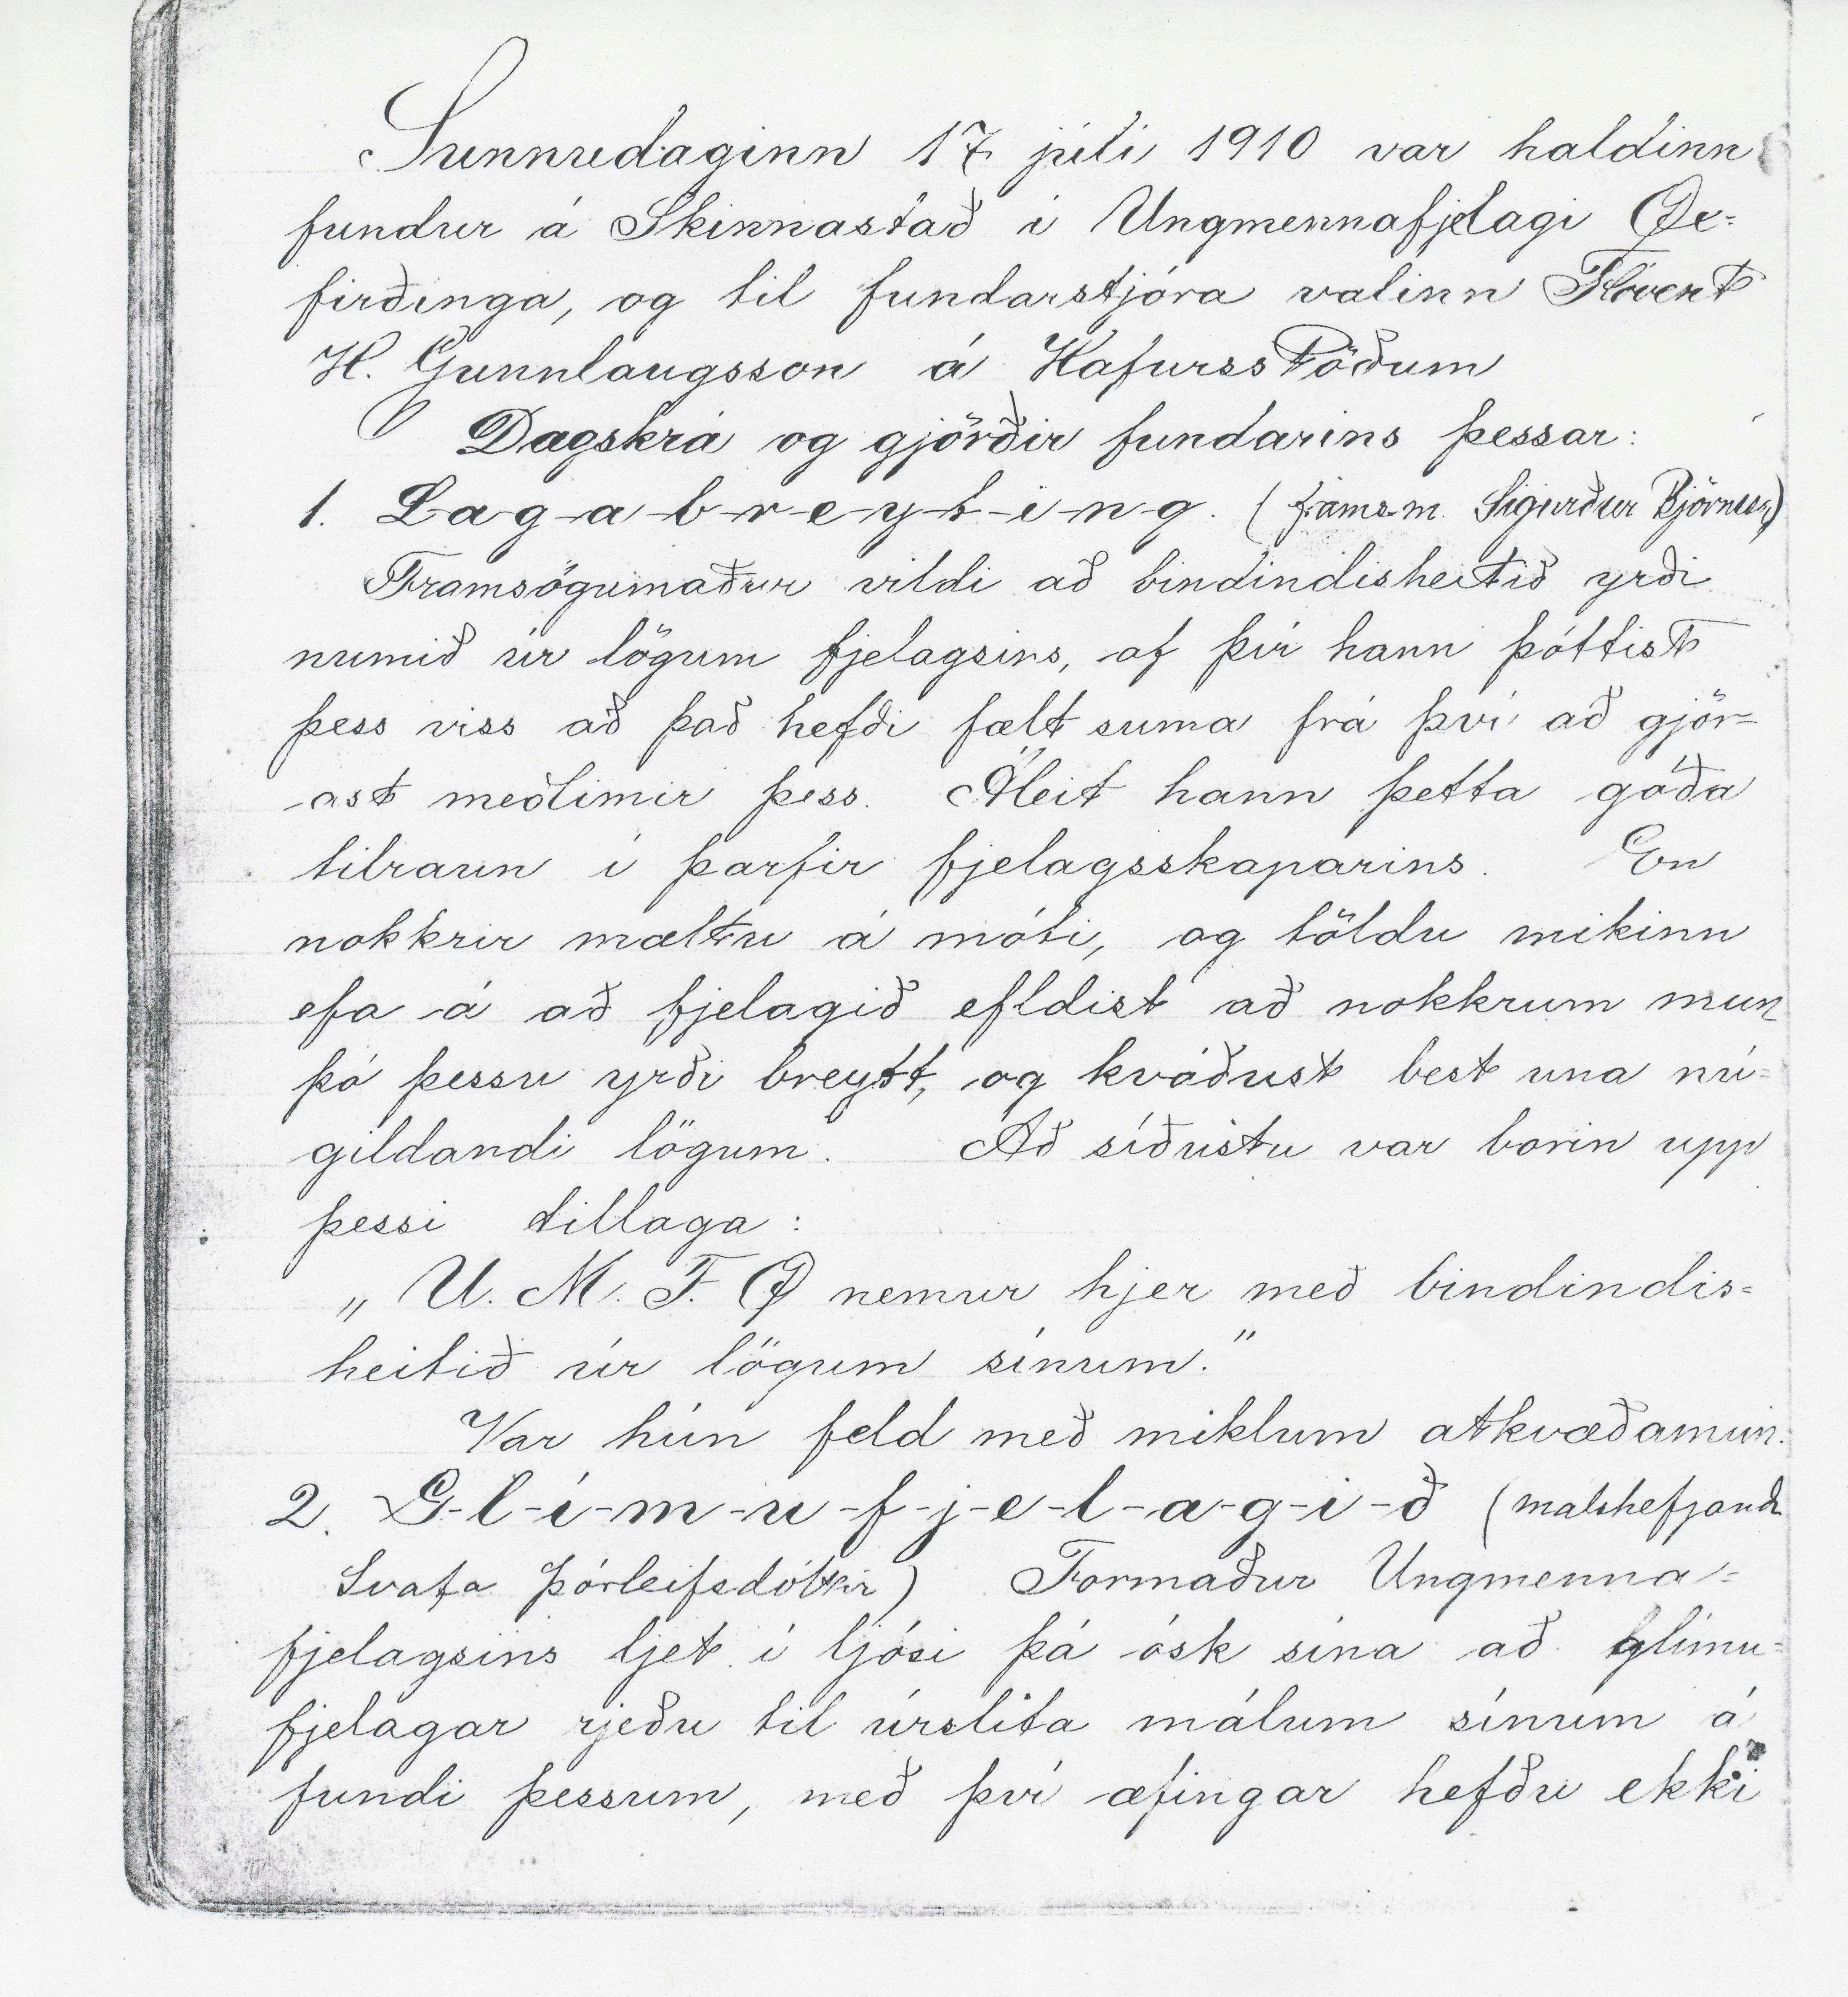 Sunnudaginn 17 júli 1910 var haldinn
fundur á Skinnastað i Ungmennafjelagi Öx-
firðinga, og til fundarstjóra valinn Flóvent
H. Gunnlaugsson á Hafursstöðum
Dagskrá og gjörðir fundarins þessar:
1. L-a-g-a-b-r-e-y-t-i-n-g. (framsm. Sigurður Björnsson)
Framsögumaður vildi að bindindisheitið yrði
numið úr lögum fjelagsins, af því hann þóttist
þess viss að það hefði fælt suma frá því að gjör-
ast meðlimir þess. Áleit hann þetta góða
tilraun i þarfir fjelagsskaparins. En
nokkrir mæltu á móti, og töldu mikinn
efa á að fjelagið efldist að nokkrum mun
þó þessu yrði breytt, og kváðust best una nú-
gildandi lögum. Að síðustu var borin upp
þessi tillaga:
„U. M. F. Ö nemur hjer með bindindis-
heitið úr lögum sínum."
Var hún feld með miklum atkvæðamun.
2. G-l-í-m-u-f-j-e-l-a-g-i-ð (malshefjandi
Svafa Þórleifsdóttir) Formaður Ungmenna-
fjelagsins ljet i ljósi þá ósk sína að glímu-
fjelagar rjeðu til úrslita málum sínum á
fundi þessum, með því æfingar hefðu ekki